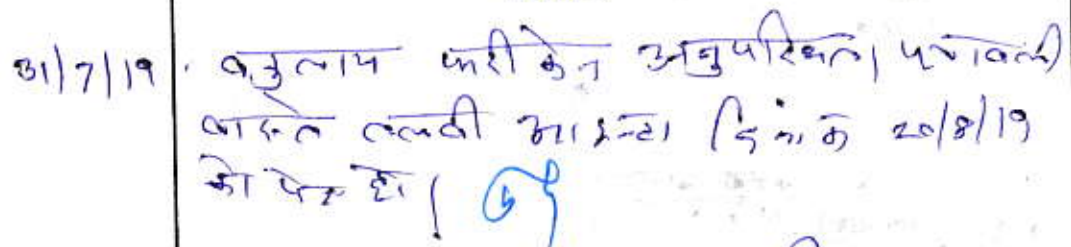 31/7/19 . बतुलाय फरीकेन अनुपस्थित। पत्रावली
वास्ते तलबी आइन्दा दिनांक 20/8/19
को पेश हो।